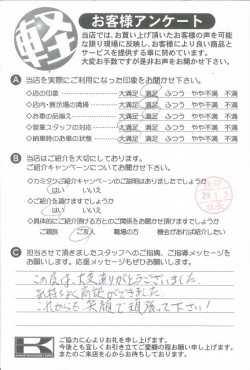 軽
お客様アンケート
当店では、お買い上げ頂いたお客様の声を可能
な限り現場に反映し、お客様により良い商品と
サービスを提供する事に努めています。
大変お手数ですが是非お声をお聞かせ下さい。
A 当店を実際にご利用になった印象をお聞かせ下さい。
◇店の印象 大満足 満足 ふつう やや不満 不満
◇店内・展示場の清掃 大満足 満足 ふつう やや不満 不満
◇お車の品揃え 大満足 満足 ふつう やや不満 不満
◇営業スタッフの対応 大満足 満足 ふつう やや不満 不満
◇納車時のお車の状態 大満足 満足 ふつう やや不満 不満
B 当店はご紹介を大切にしております。
ご紹介キャンペーンについてお聞かせ下さい。
◇カミタケご紹介キャンペーンのご説明はありましたでしょうか
はい いいえ
◇ご紹介を頂けますでしょうか
はい いいえ
◇具体的にご紹介頂ける方とのご関係をお聞かせ頂けますでしょうか
ご親族 ご友人 職場の方 機会があれば紹介したい
C 担当させて頂きましたスタッフへのご指摘、ご指導メッセージを
お願いします。応援メッセージもぜひお願いします。
この度は、大変ありがとうございました。
気持ちよく商談ができました。
これからも笑顔で頑張って下さい!
K
ご協力に心よりお礼を申し上げます。
今後とも宜しくお引き立てご愛顧の程お願い申し上げます。
またのご来店を心からお待ちしております。